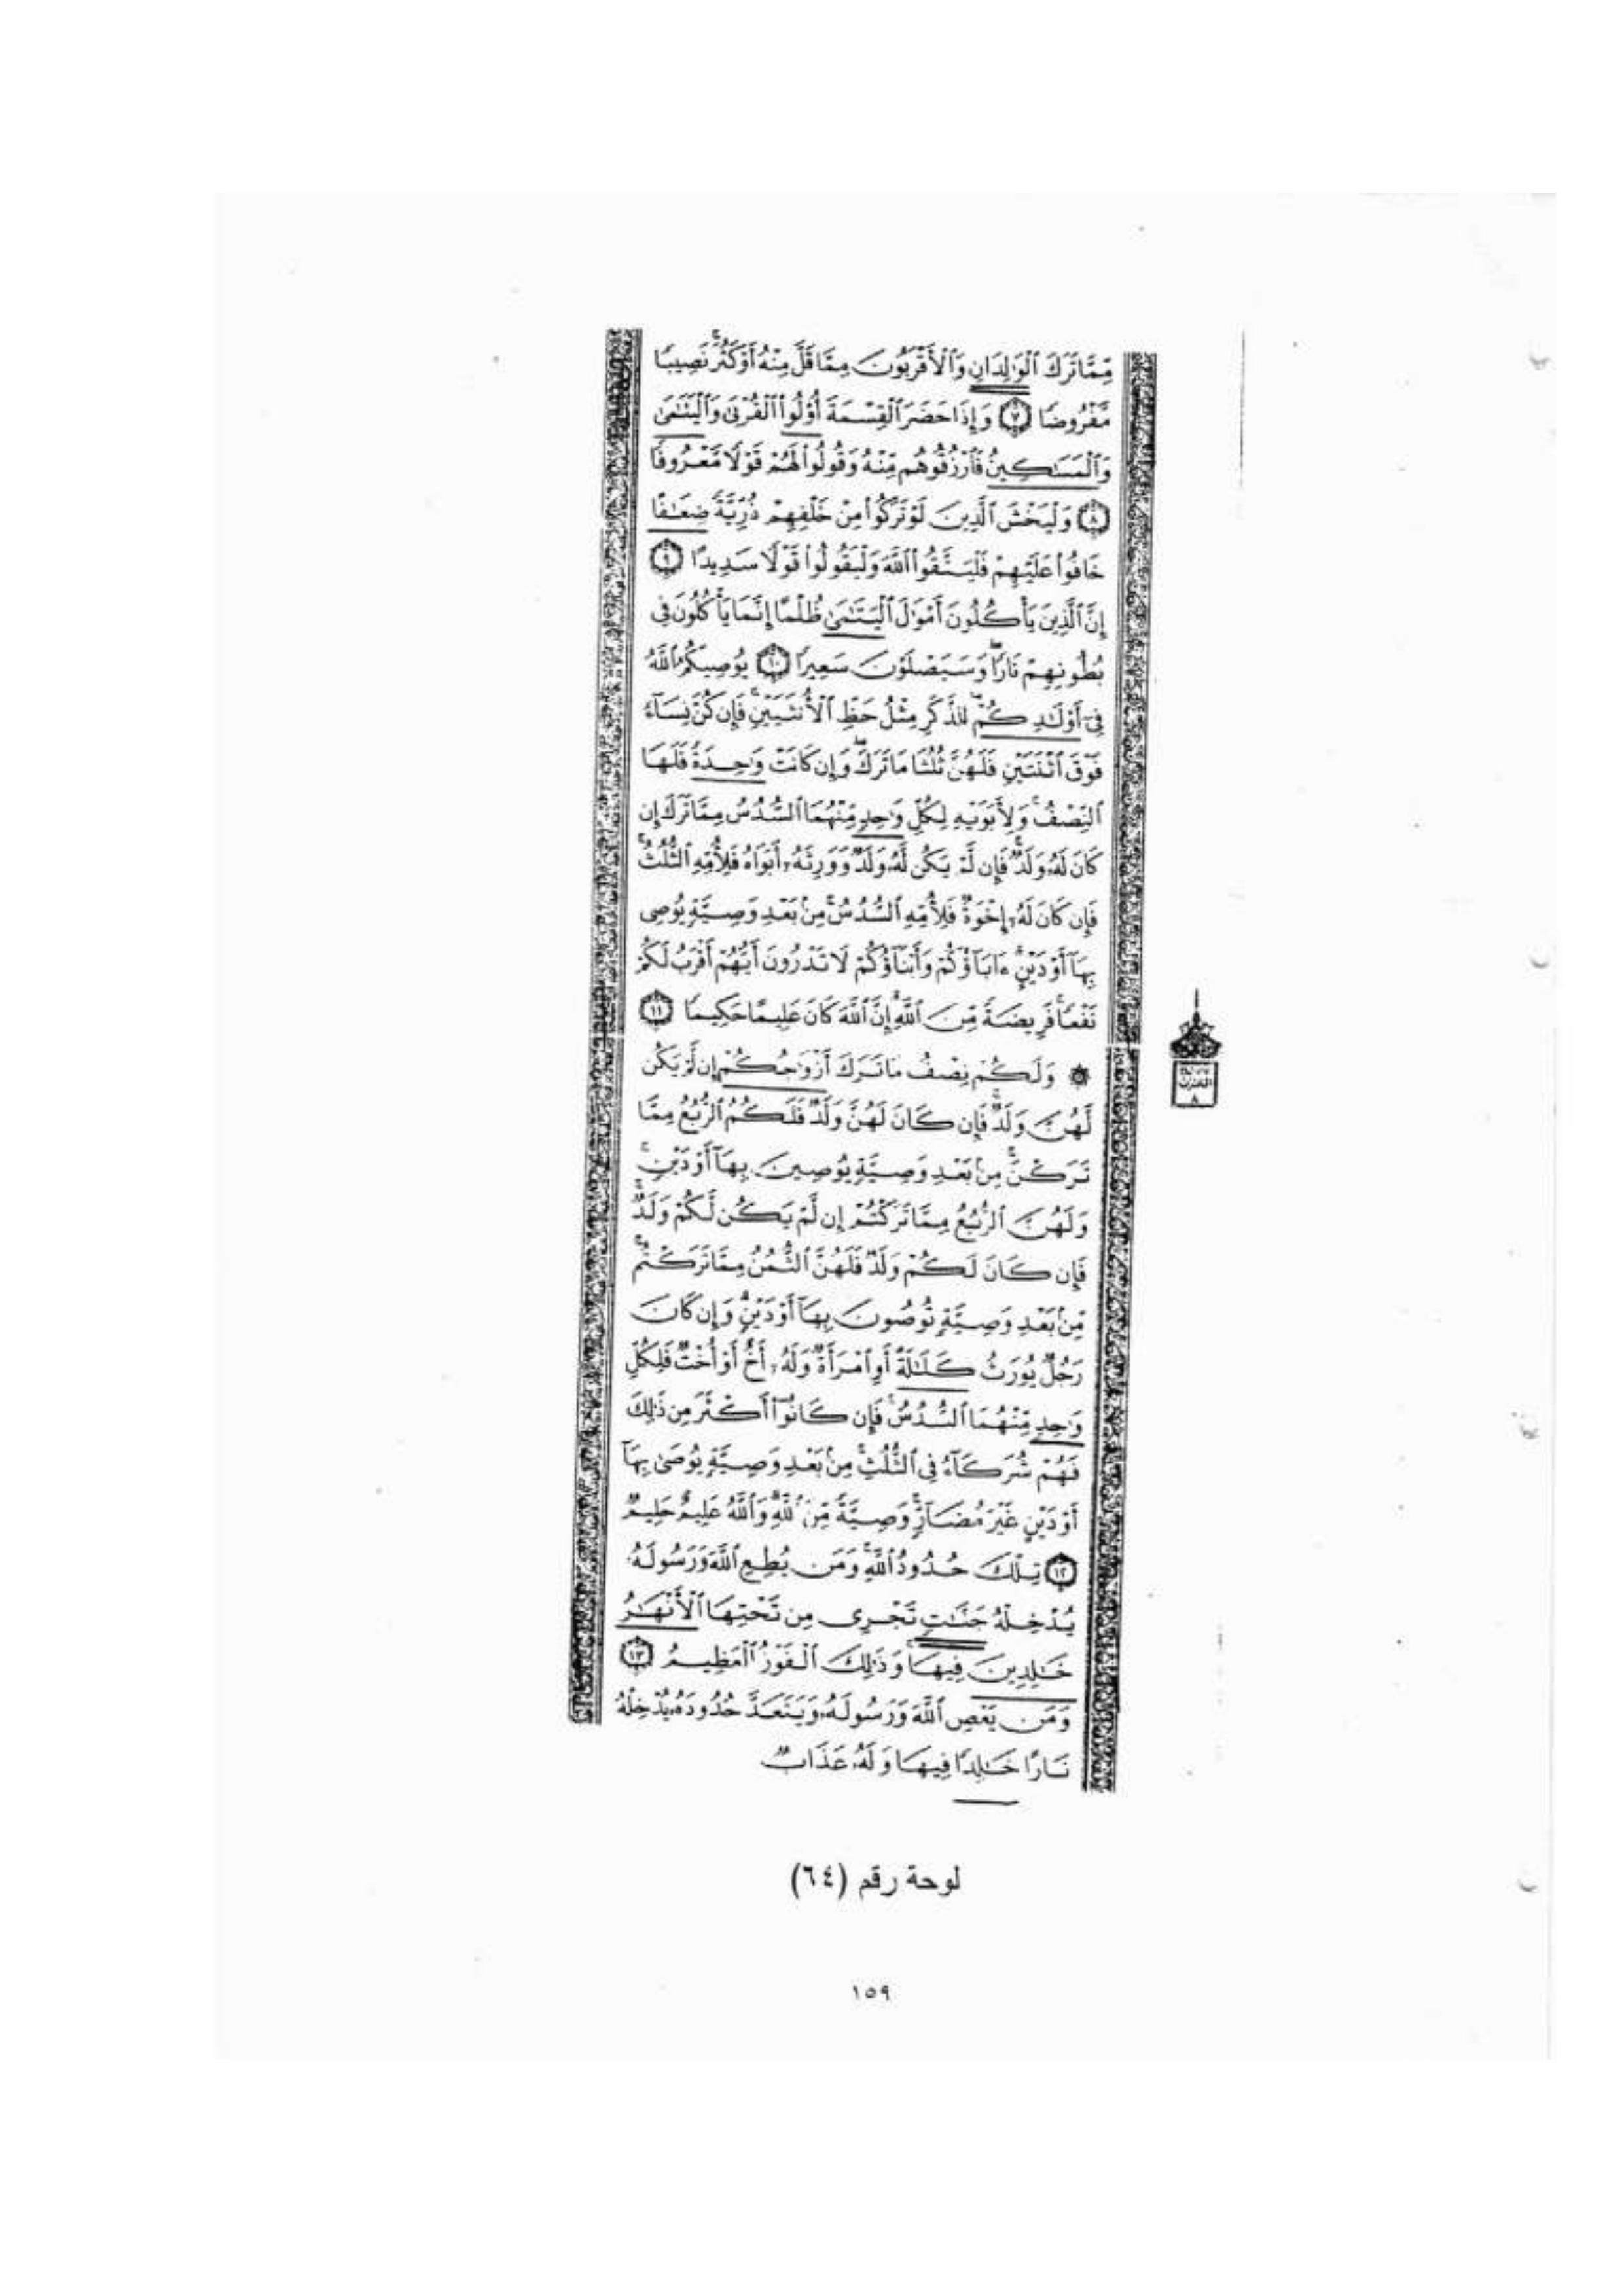 مِّمَّا تَرَكَ ٱلْوَٰلِدَانِ وَٱلْأَقْرَبُونَ مِمَّا قَلَّ مِنْهُ أَوْ كَثُرَ ۚ نَصِيبًا
مَّفْرُوضًا ٧ وَإِذَا حَضَرَ ٱلْقِسْمَةَ أُو۟لُوا۟ ٱلْقُرْبَىٰ وَٱلْيَتَٰمَىٰ
وَٱلْمَسَٰكِينُ فَٱرْزُقُوهُم مِّنْهُ وَقُولُوا۟ لَهُمْ قَوْلًا مَّعْرُوفًا
٨ وَلْيَخْشَ ٱلَّذِينَ لَوْ تَرَكُوا۟ مِنْ خَلْفِهِمْ ذُرِّيَّةً ضِعَٰفًا
خَافُوا۟ عَلَيْهِمْ فَلْيَتَّقُوا۟ ٱللَّهَ وَلْيَقُولُوا۟ قَوْلًا سَدِيدًا ٩
إِنَّ ٱلَّذِينَ يَأْكُلُونَ أَمْوَٰلَ ٱلْيَتَٰمَىٰ ظُلْمًا إِنَّمَا يَأْكُلُونَ فِى
بُطُونِهِمْ نَارًا ۖ وَسَيَصْلَوْنَ سَعِيرًا ١٠ يُوصِيكُمُ ٱللَّهُ
فِىٓ أَوْلَٰدِكُمْ ۖ لِلذَّكَرِ مِثْلُ حَظِّ ٱلْأُنثَيَيْنِ ۚ فَإِن كُنَّ نِسَآءً
فَوْقَ ٱثْنَتَيْنِ فَلَهُنَّ ثُلُثَا مَا تَرَكَ ۖ وَإِن كَانَتْ وَٰحِدَةً فَلَهَا
ٱلنِّصْفُ ۚ وَلِأَبَوَيْهِ لِكُلِّ وَٰحِدٍ مِّنْهُمَا ٱلسُّدُسُ مِمَّا تَرَكَ إِن
كَانَ لَهُۥ وَلَدٌ ۚ فَإِن لَّمْ يَكُن لَّهُۥ وَلَدٌ وَوَرِثَهُۥٓ أَبَوَاهُ فَلِأُمِّهِ ٱلثُّلُثُ ۚ
فَإِن كَانَ لَهُۥٓ إِخْوَةٌ فَلِأُمِّهِ ٱلسُّدُسُ ۚ مِنۢ بَعْدِ وَصِيَّةٍ يُوصِى
بِهَآ أَوْ دَيْنٍ ۗ ءَابَآؤُكُمْ وَأَبْنَآؤُكُمْ لَا تَدْرُونَ أَيُّهُمْ أَقْرَبُ لَكُمْ
نَفْعًا ۚ فَرِيضَةً مِّنَ ٱللَّهِ ۗ إِنَّ ٱللَّهَ كَانَ عَلِيمًا حَكِيمًا ١١
۞ وَلَكُمْ نِصْفُ مَا تَرَكَ أَزْوَٰجُكُمْ إِن لَّمْ يَكُن
لَّهُنَّ وَلَدٌ ۚ فَإِن كَانَ لَهُنَّ وَلَدٌ فَلَكُمُ ٱلرُّبُعُ مِمَّا
تَرَكْنَ ۚ مِنۢ بَعْدِ وَصِيَّةٍ يُوصِينَ بِهَآ أَوْ دَيْنٍ ۚ
وَلَهُنَّ ٱلرُّبُعُ مِمَّا تَرَكْتُمْ إِن لَّمْ يَكُن لَّكُمْ وَلَدٌ ۚ
فَإِن كَانَ لَكُمْ وَلَدٌ فَلَهُنَّ ٱلثُّمُنُ مِمَّا تَرَكْتُم ۚ
مِّنۢ بَعْدِ وَصِيَّةٍ تُوصُونَ بِهَآ أَوْ دَيْنٍ ۗ وَإِن كَانَ
رَجُلٌ يُورَثُ كَلَٰلَةً أَوِ ٱمْرَأَةٌ وَلَهُۥٓ أَخٌ أَوْ أُخْتٌ فَلِكُلِّ
وَٰحِدٍ مِّنْهُمَا ٱلسُّدُسُ ۚ فَإِن كَانُوٓا۟ أَكْثَرَ مِن ذَٰلِكَ
فَهُمْ شُرَكَآءُ فِى ٱلثُّلُثِ ۚ مِنۢ بَعْدِ وَصِيَّةٍ يُوصَىٰ بِهَآ
أَوْ دَيْنٍ غَيْرَ مُضَآرٍّ ۚ وَصِيَّةً مِّنَ ٱللَّهِ ۗ وَٱللَّهُ عَلِيمٌ حَلِيمٌ
١٢ تِلْكَ حُدُودُ ٱللَّهِ ۚ وَمَن يُطِعِ ٱللَّهَ وَرَسُولَهُۥ
يُدْخِلْهُ جَنَّٰتٍ تَجْرِى مِن تَحْتِهَا ٱلْأَنْهَٰرُ
خَٰلِدِينَ فِيهَا ۚ وَذَٰلِكَ ٱلْفَوْزُ ٱلْعَظِيمُ ١٣
وَمَن يَعْصِ ٱللَّهَ وَرَسُولَهُۥ وَيَتَعَدَّ حُدُودَهُۥ يُدْخِلْهُ
نَارًا خَٰلِدًا فِيهَا وَلَهُۥ عَذَابٌ
الحزب
٨
لوحة رقم (٦٤)
١٥٩